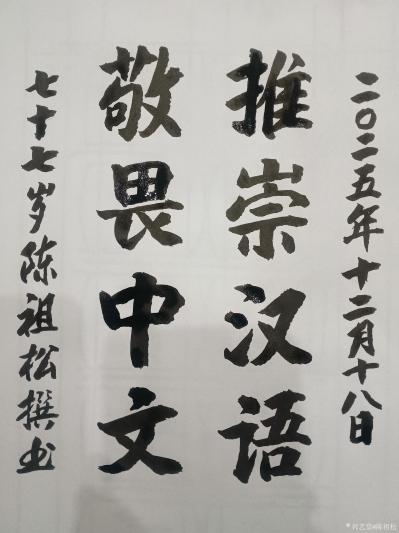 二〇二五年十二月十八日
推崇汉语
敬畏中文
七十七岁陈祖松撰书